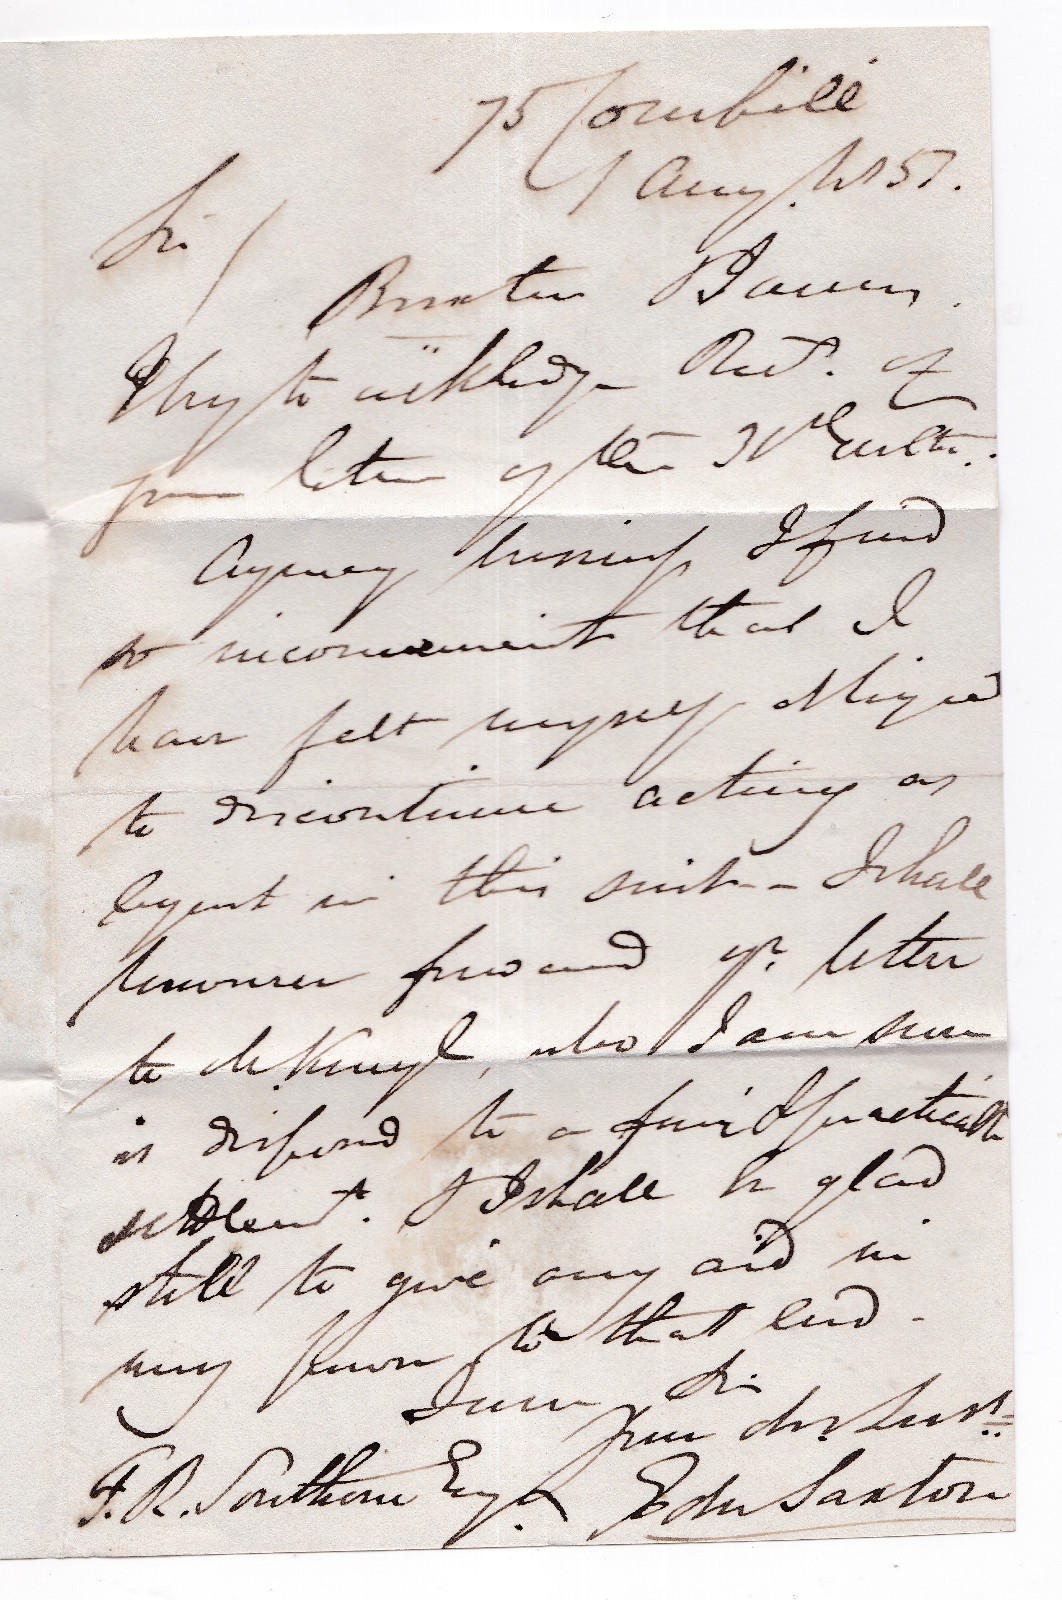 75 Cornhill
1 Aug. 1857.
Sir /
Buxton
I beg to acknledge Rect. of
your letter of the 31st ulto.
Agency business I find
so inconvenient that I
have felt myself obliged
to discontinue acting as
Agent in this suit - I shall
however forward yr. letter
to Mr. , who I am sure
is disposed to a fair & practicable
settlemt. & I shall be glad
still to give any aid in
my power to that end -
I am Sir
Your obt. Servt.
F. R. Southern Esq. Edw Saxton